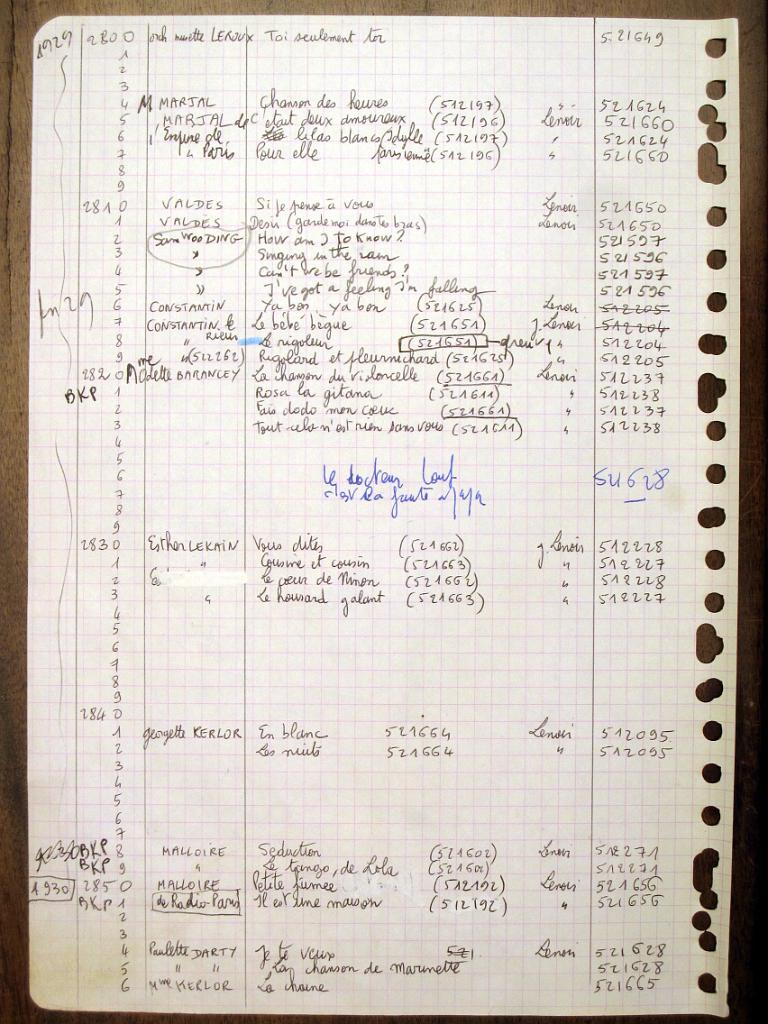 1929 2800 orch musette LEROUX Toi seulement toi 521649
1
2
3
4 M MARJAL Chanson des heures (512197) " 521624
5 MARJAL de C'etait deux amoureux (512196) Lenoir 521660
6 l'Empire de lilas blancs/Idylle (512197) " 521624
7 " Paris Pour elle parisienne (512196) " 521660
8
9
2810 VALDES Si je pense à vous Lenoir 521650
1 VALDES Desir (garde moi dans tes bras) Lenoir 521650
2 Sam WOODING How am I to know? 521597
3 " Singing in the rain 521596
4 " Can't we be friends? 521597
5 " I've got a feeling I'm falling 521596
fin 29 6 CONSTANTIN Ya bon, ya bon (521625) Lenoir 512205
7 CONSTANTIN le Le bébé bègue (521651) J. Lenoir 512204
8 " Rieur Le rigoleur (521651) " 512204
9 " (522262) Rigolard et fleurnichard (521625) " 512205
2820 Mme Odette BARANCEY La chanson du violoncelle (521661) Lenoir 512237
BKP 1 Rosa la gitana (521611) " 512238
2 Fais dodo mon cœur (521661) " 512237
3 Tout cela n'est rien sans vous (521611) " 512238
4
5
6 Le docteur 521628
7 c'est la faute
8
9
2830 Esther LEKAIN Vous dites (521662) J. Lenoir 512228
1 " Cousine et cousin (521663) " 512227
2 Le cœur de Ninon (521662) " 512228
3 " Le housard galant (521663) " 512227
4
5
6
7
8
9
2840
1 Georgette KERLOR En blanc 521664 Lenoir 512095
2 Les nuits 521664 " 512095
3
4
5
6
7
BKP 8 MALLOIRE Seduction (521602) Lenoir 512271
BKP 9 " Le tango de Lola (521602) 512271
1930 2850 MALLOIRE Petite fumee (512192) Lenoir 521656
BKP 1 de Radio-Paris Il est une maison (512192) " 521656
2
3
4 Paulette DARTY Je te veux 521 Lenoir 521628
5 " " La chanson de Marinette 521628
6 Mme KERLOR La chaine 521665